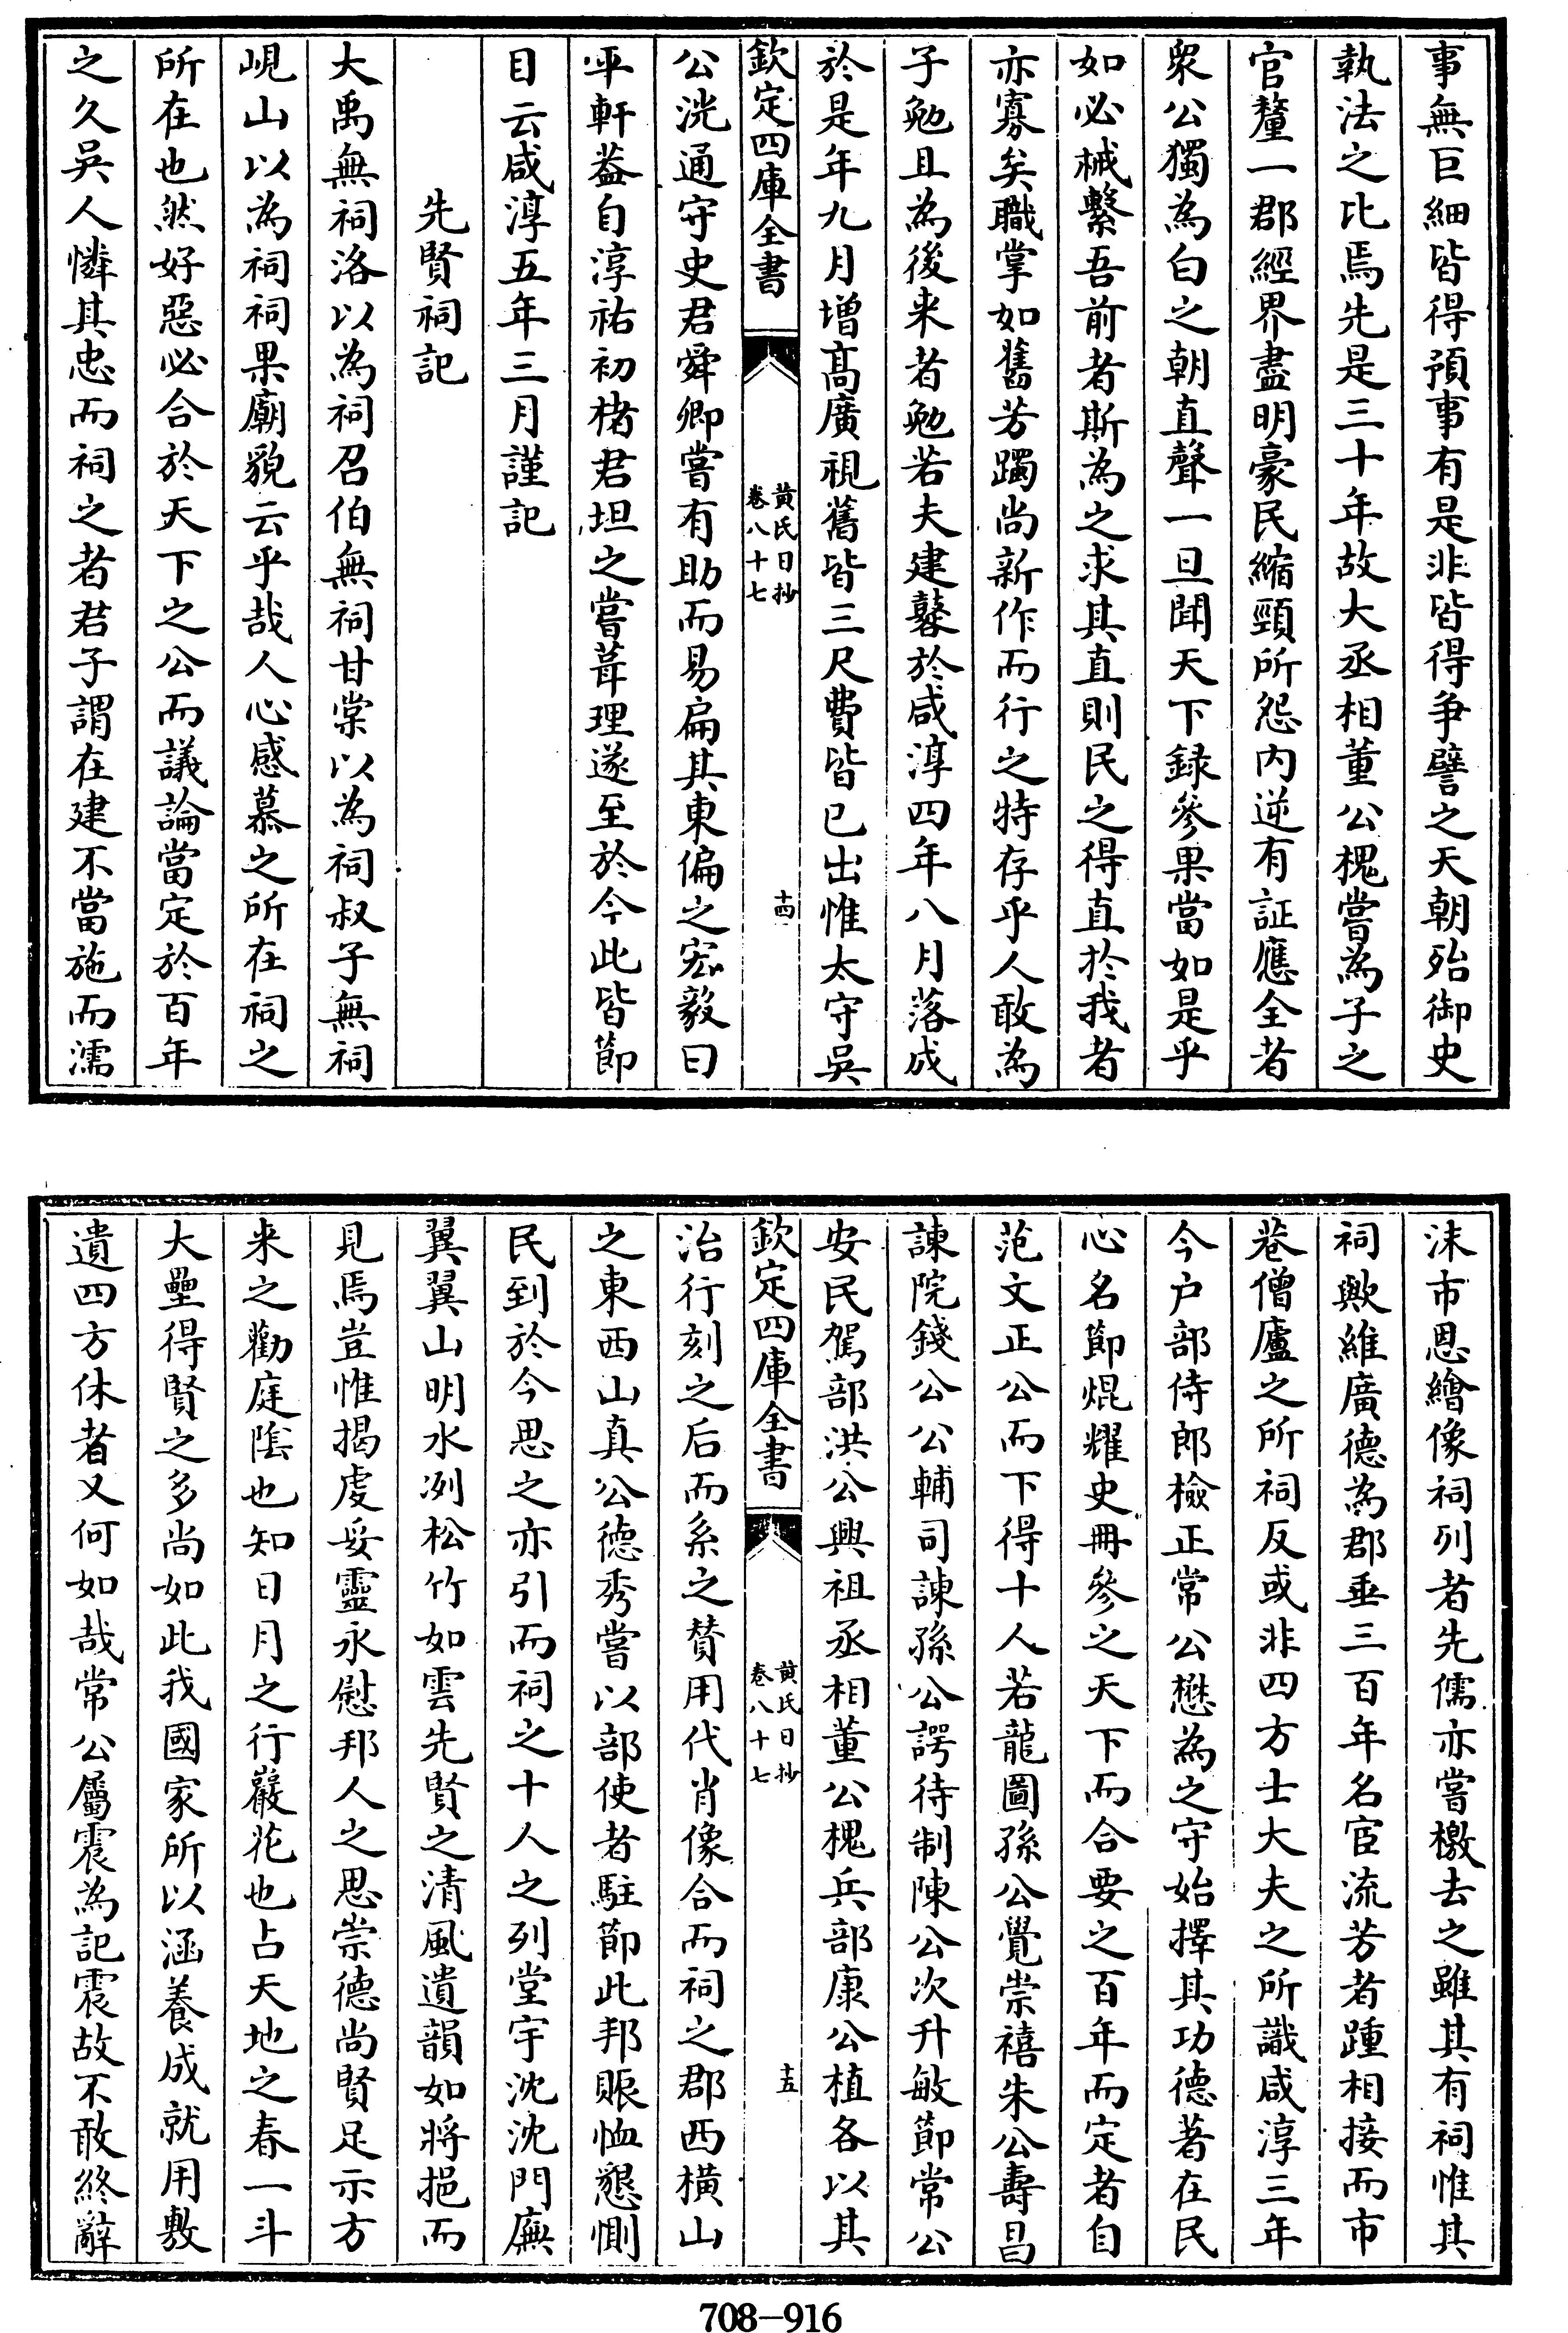 事無巨細皆得預事有是非皆得爭譬之天朝殆御史
執法之比焉先是三十年故大丞相董公槐嘗為子之
官釐一郡經界盡明豪民縮頸所怨内逆有証應全者
衆公獨為白之朝直聲一旦聞天下録參果當如是乎
如必械繫吾前者斯為之求其直則民之得直於我者
亦寡矣職掌如舊芳躅尚新作而行之特存乎人敢為
子勉且為後来者勉若夫建鼛於咸淳四年八月落成
於是年九月增髙廣視舊皆三尺費皆已出惟太守吳
欽定四庫全書
黄氏日抄
卷八十七
十四
公洸通守史君舜卿嘗有助而易扁其東偏之宏毅曰
平軒葢自淳祐初楮君坦之嘗葺理遂至於今此皆節
目云咸淳五年三月謹記
先賢祠記
大禹無祠洛以為祠召伯無祠甘棠以為祠叔子無祠
峴山以為祠祠果廟貌云乎哉人心感慕之所在祠之
所在也然好惡必合於天下之公而議論當定於百年
之久吳人憐其忠而祠之者君子謂在建不當施而濡
沫市恩繪像祠列者先儒亦嘗檄去之雖其有祠惟其
祠歟維廣德為郡垂三百年名宦流芳者踵相接而市
巷僧廬之所祠反或非四方士大夫之所識咸淳三年
今户部侍郎檢正常公懋為之守始擇其功德著在民
心名節焜耀史冊參之天下而合要之百年而定者自
范文正公而下得十人若龍圖孫公覺崇禧朱公壽昌
諫院錢公公輔司諫孫公諤待制陳公次升敏節常公
安民駕部洪公興祖丞相董公槐兵部康公植各以其
欽定四庫全書
黄氏日抄
卷八十七
十五
治行刻之后而系之賛用代肖像合而祠之郡西横山
之東西山真公德秀嘗以部使者駐節此邦賑恤懇惻
民到於今思之亦引而祠之十人之列堂宇沈沈門廡
翼翼山明水冽松竹如雲先賢之清風遺韻如將挹而
見焉豈惟揭䖍妥靈永慰邦人之思崇德尚賢足示方
来之勸庭隂也知日月之行巖花也占天地之春一斗
大壘得賢之多尚如此我國家所以涵養成就用敷
遺四方休者又何如哉常公屬震為記震故不敢終辭
708—916